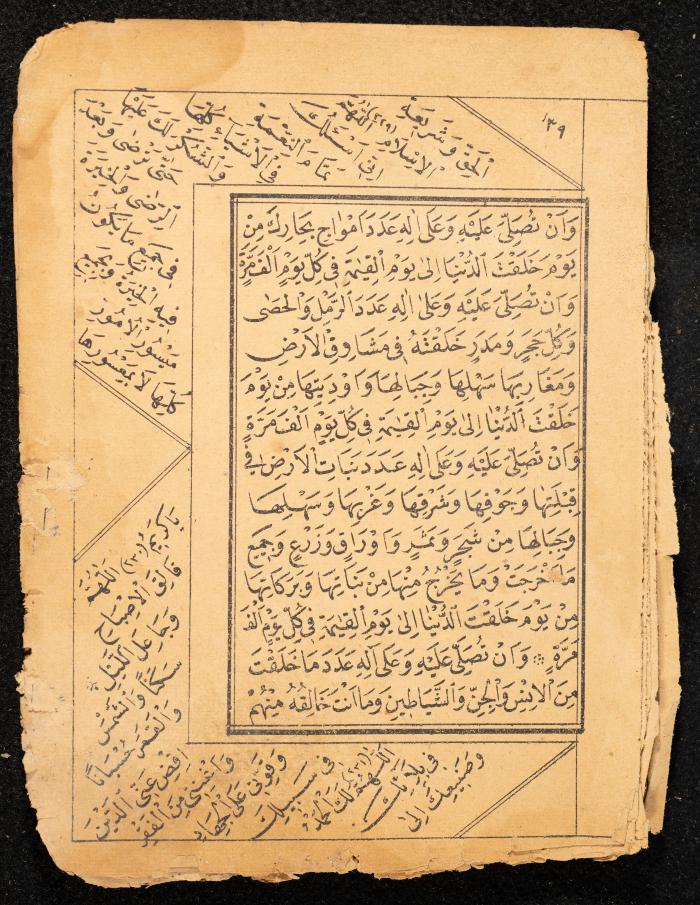 ١٣٩
وَاَنْ تُصَلِّىَ عَلَيْهِ وَعَلٰى اٰلِهِ عَدَدَ اَمْوَاجِ بِحَارِكَ مِنْ
يَوْمَ خَلَقْتَ الدُّنْيَا اِلٰى يَوْمِ الْقِيٰمَةِ فِى كُلِّ يَوْمٍ اَلْفَ مَرَّةٍ
وَاَنْ تُصَلِّىَ عَلَيْهِ وَعَلٰى اٰلِهِ عَدَدَ الرَّمْلِ وَالْحَصٰى
وَكُلِّ حَجَرٍ وَمَدَرٍ خَلَقْتَهُ فِى مَشَارِقِ الْاَرْضِ
وَمَغَارِبِهَا سَهْلِهَا وَجِبَالِهَا وَاَوْدِيَتِهَا مِنْ يَوْمَ
خَلَقْتَ الدُّنْيَا اِلٰى يَوْمِ الْقِيٰمَةِ فِى كُلِّ يَوْمٍ اَلْفَ مَرَّةٍ
وَاَنْ تُصَلِّىَ عَلَيْهِ وَعَلٰى اٰلِهِ عَدَدَ نَبَاتِ الْاَرْضِ فِى
قِبْلَتِهَا وَجَوْفِهَا وَشَرْقِهَا وَغَرْبِهَا وَسَهْلِهَا
وَجِبَالِهَا مِنْ شَجَرٍ وَثَمَرٍ وَاَوْرَاقٍ وَزَرْعٍ وَجَمِيعِ
مَا خَرَجَتْ وَمَا يَخْرُجُ مِنْهَا مِنْ نَبَاتِهَا وَبَرَكَاتِهَا
مِنْ يَوْمَ خَلَقْتَ الدُّنْيَا اِلٰى يَوْمِ الْقِيٰمَةِ فِى كُلِّ يَوْمٍ اَلْفَ
مَرَّةٍ ❊ وَاَنْ تُصَلِّىَ عَلَيْهِ وَعَلٰى اٰلِهِ عَدَدَ مَا خَلَقْتَ
مِنَ الْاِنْسِ وَالْجِنِّ وَالشَّيَاطِينَ وَمَا اَنْتَ خَالِقُهُ مِنْهُمْ
الْحَقِّ وَشَرِيعَةِ
الْاِسْلَامِ (٢٢٩) اَللّٰهُمَّ
اِنِّى اَسْئَلُكَ
تَمَامَ النِّعْمَةِ
فِى الْاَشْيَاءِ كُلِّهَا
وَالشُّكْرَ لَكَ عَلَيْهَا
حَتّٰى تَرْضٰى وَبَعْدَ
الرِّضٰى وَالْخِيَرَةَ
فِى جَمِيعِ مَا يَكُونُ
فِيهِ الْخِيَرَةُ وَبِجَمِيعِ
مَيْسُورِ الْاُمُورِ
كُلِّهَا لَا بِمَعْسُورِهَا
يَا كَرِيمُ (٢٣٠) اَللّٰهُمَّ
فَالِقَ الْاِصْبَاحِ
وَجَاعِلَ اللَّيْلِ
سَكَنًا وَالشَّمْسَ
وَالْقَمَرَ حُسْبَانًا
اِقْضِ عَنِّى الدَّيْنَ
وَاَغْنِنِى مِنَ الْفَقْرِ
وَقَوِّنِى عَلَى الْجِهَادِ
فِى سَبِيلِكَ
اَللّٰهُمَّ (٢٣١) لَكَ الْحَمْدُ
فِى بَلَائِكَ
وَصَنِيعِكَ اِلٰى